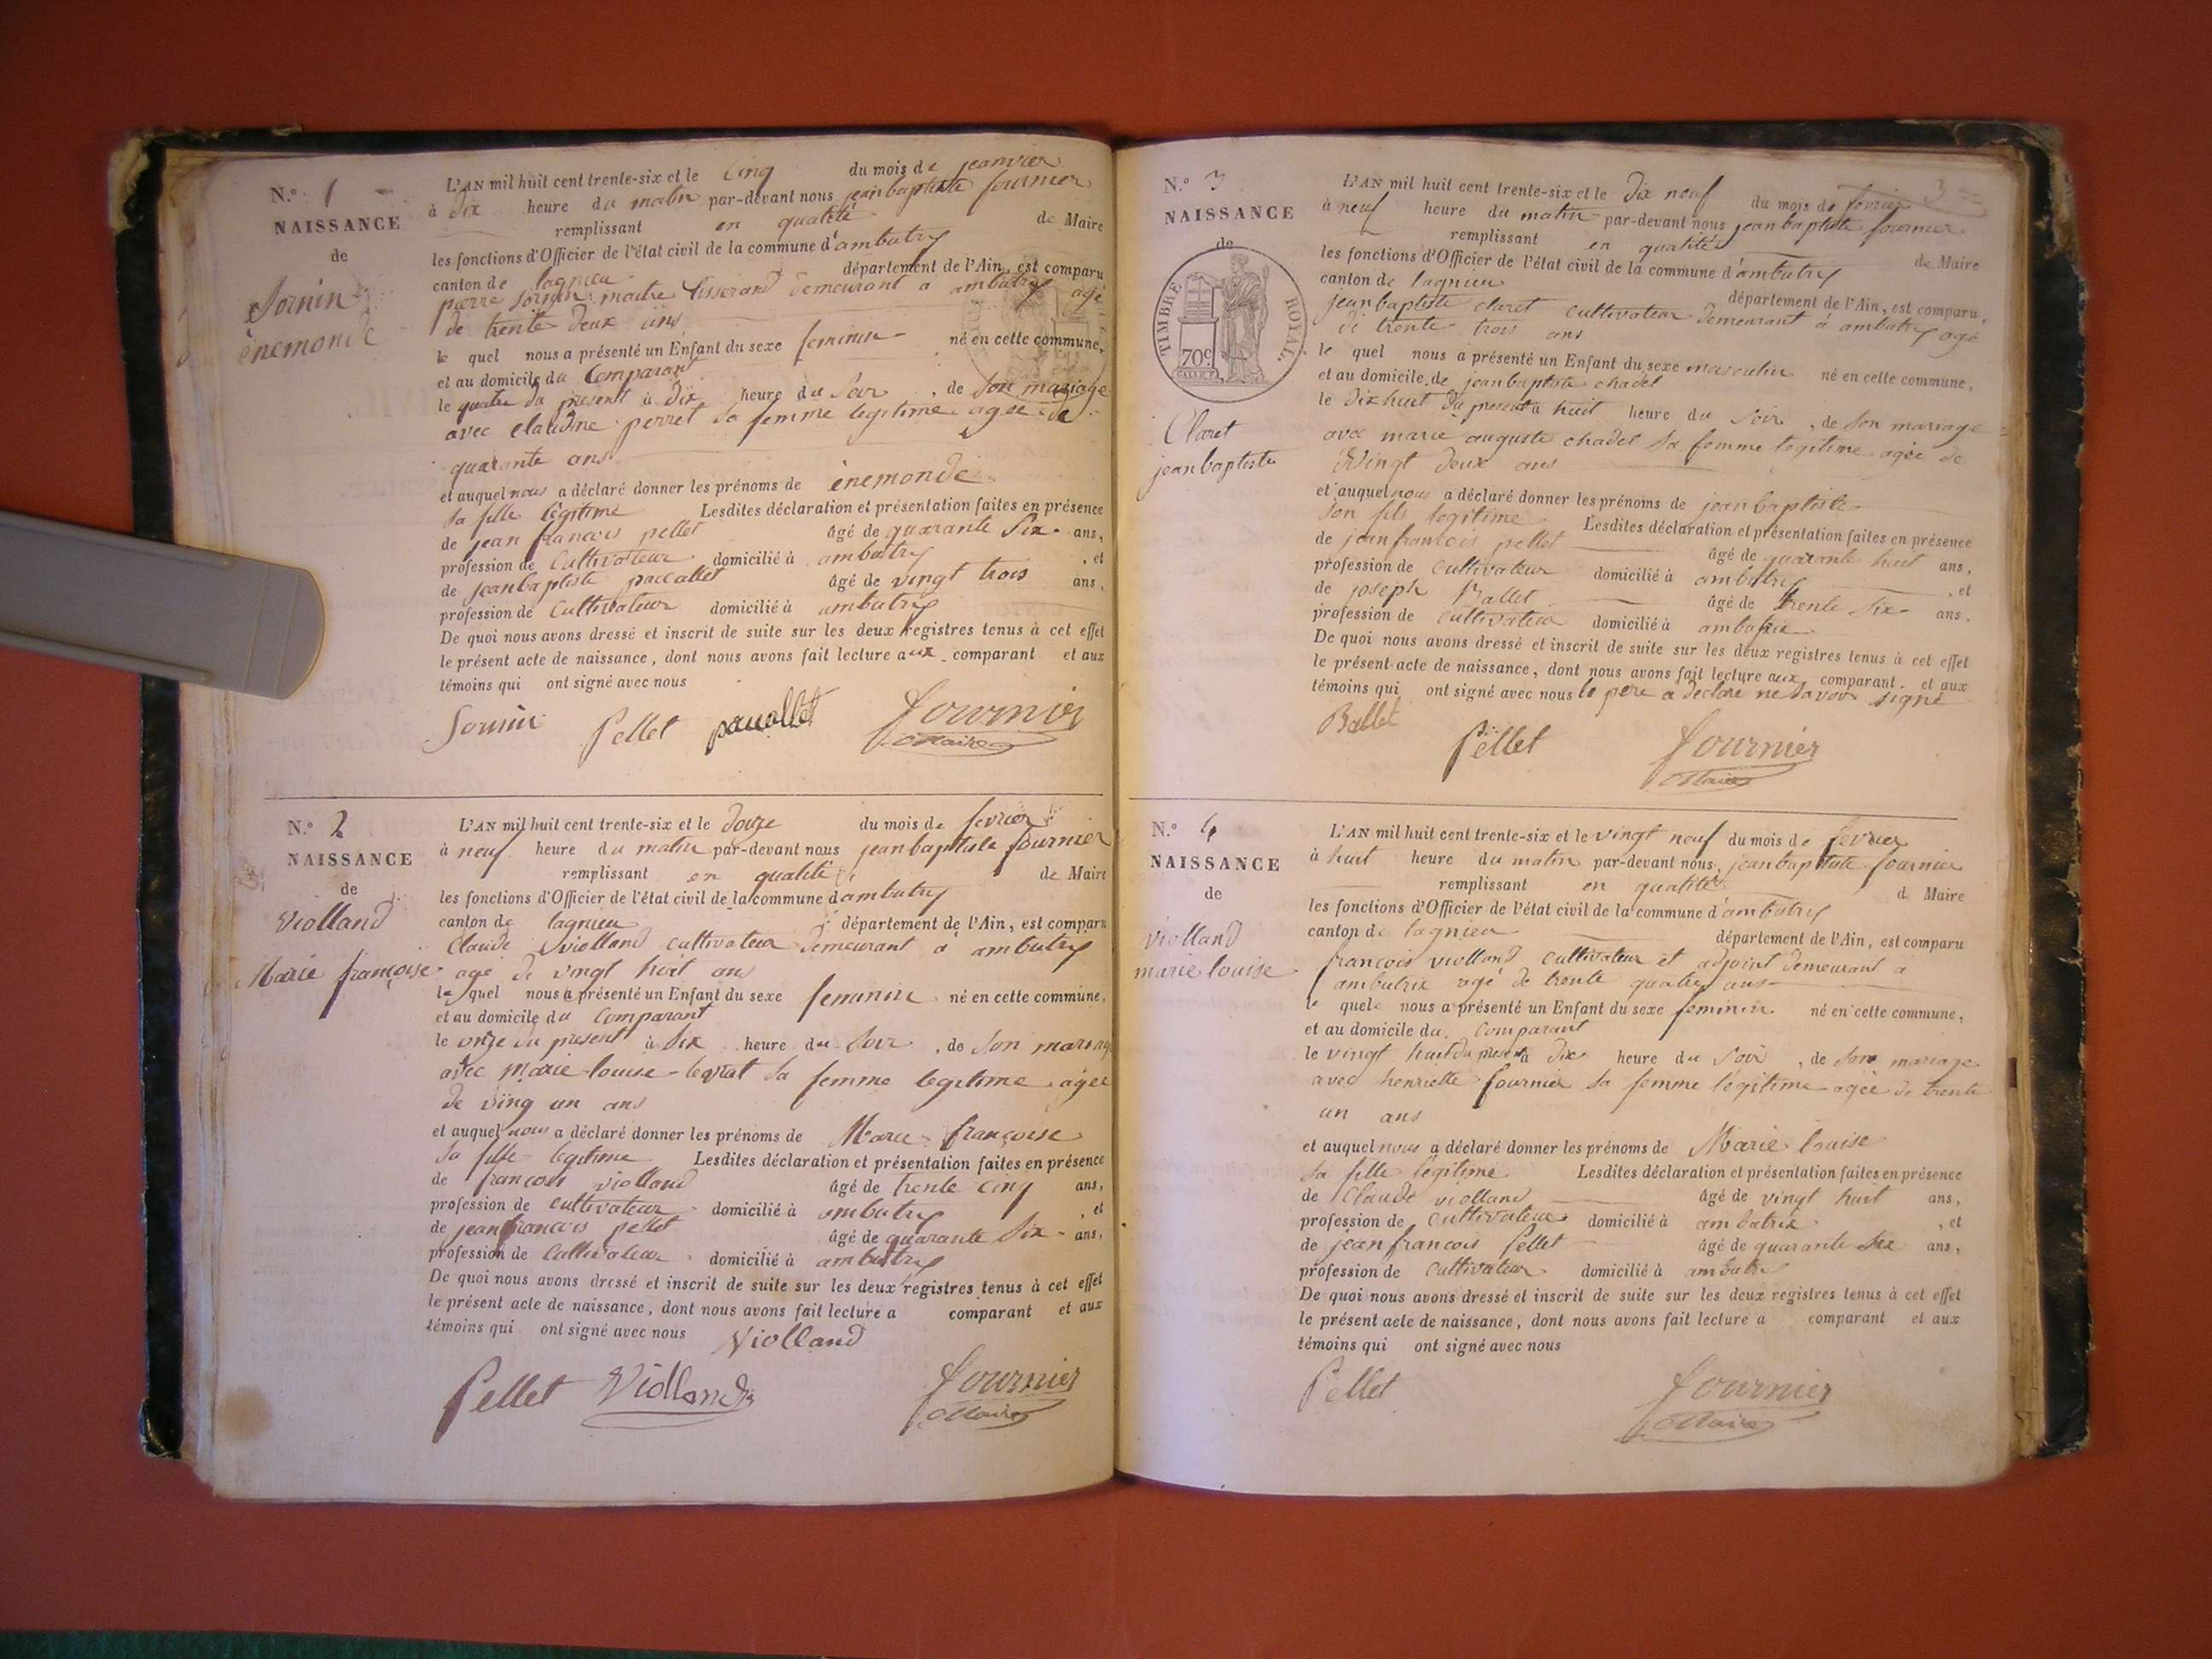 N.o 1
NAISSANCE
de
Sornin
ènemonde
L'AN mil huit cent trente-six et le cinq du mois de jeanvier
à dix heure du matin par-devant nous jean baptiste fournier
remplissant en qualité de Maire
les fonctions d'Officier de l'état civil de la commune d'ambutry
canton de lagnieu département de l'Ain, est comparu
pierre sornin maitre tisserand demeurant a ambutry agé
de trente deux ans
le quel nous a présenté un Enfant du sexe feminin né en cette commune,
et au domicile du Comparant
le quatre du present à dix heure du soir, de son mariage
avec claudine perret sa femme legitime agee de
quarante ans
et auquel nous a déclaré donner les prénoms de ènemonde
sa fille légitime Lesdites déclaration et présentation faites en présence
de jean francois pellet âgé de quarante six ans,
profession de Cultivateur domicilié à ambutry, et
de jean baptiste paccallet âgé de vingt trois ans,
profession de Cultivateur domicilié à ambutry
De quoi nous avons dressé et inscrit de suite sur les deux registres tenus à cet effet
le présent acte de naissance, dont nous avons fait lecture aux comparant et aux
témoins qui ont signé avec nous
Sornin Pellet paccallet fournier
Maire
N.o 2
NAISSANCE
de
violland
Marie françoise
L'AN mil huit cent trente-six et le douze du mois de fevrier
à neuf heure du matin par-devant nous jean baptiste fournier
remplissant en qualité de Maire
les fonctions d'Officier de l'état civil de la commune d'ambutry
canton de lagnieu département de l'Ain, est comparu
Claude violland cultivateur demeurant a ambutry
agé de vingt huit ans
le quel nous a présenté un Enfant du sexe feminin né en cette commune,
et au domicile du Comparant
le onze du present à six heure du soir, de son mariage
avec Marie louise legrat sa femme legitime agee
de ving un ans
et auquel nous a déclaré donner les prénoms de Marie françoise
sa fille legitime Lesdites déclaration et présentation faites en présence
de francois violland âgé de trente cinq ans,
profession de cultivateur domicilié à ambutry, et
de jean francois pellet âgé de quarante six ans,
profession de Cultivateur domicilié à ambutry
De quoi nous avons dressé et inscrit de suite sur les deux registres tenus à cet effet
le présent acte de naissance, dont nous avons fait lecture a comparant et aux
témoins qui ont signé avec nous Violland
Pellet Violland fournier
Maire
3
N.o 3
NAISSANCE
de
TIMBRE ROYAL.
70c
Claret
jean baptiste
L'AN mil huit cent trente-six et le Dix neuf du mois de fevrier
à neuf heure du matin par-devant nous jean baptiste fournier
remplissant en qualité de Maire
les fonctions d'Officier de l'état civil de la commune d'ambutry
canton de lagnieu département de l'Ain, est comparu,
jean baptiste claret cultivateur demeurant à ambutry agé
de trente trois ans
le quel nous a présenté un Enfant du sexe masculin né en cette commune,
et au domicile de jean baptiste chadel
le Dix huit du present à huit heure du soir, de son mariage
avec marie auguste chadel sa femme legitime agée de
Vingt deux ans
et auquel nous a déclaré donner les prénoms de jean baptiste
son fils legitime Lesdites déclaration et présentation faites en présence
de jean francois pellet âgé de quarante huit ans,
profession de cultivateur domicilié à ambutry, et
de joseph Ballet âgé de trente six ans,
profession de cultivateur domicilié à ambutrix
De quoi nous avons dressé et inscrit de suite sur les deux registres tenus à cet effet
le présent acte de naissance, dont nous avons fait lecture aux comparant et aux
témoins qui ont signé avec nous le pere a declaré ne savoir signé
Ballet Pellet fournier
Maire
N.o 4
NAISSANCE
de
violland
marie louise
L'AN mil huit cent trente-six et le vingt neuf du mois de fevrier
à huit heure du matin par-devant nous, jean baptiste fournier
remplissant en qualité d Maire
les fonctions d'Officier de l'état civil de la commune d'ambutry
canton de lagnieu département de l'Ain, est comparu
francois violland cultivateur et adjoint demeurant a
ambutrix agé de trente quatre ans
le quel nous a présenté un Enfant du sexe feminin né en cette commune,
et au domicile du Comparant
le vingt huit du present à dix heure du soir, de son mariage
avec henriette fournier sa femme légitime agée de trente
un ans
et auquel nous a déclaré donner les prénoms de Marie louise
sa fille légitime Lesdites déclaration et présentation faites en présence
de Claude violland âgé de vingt huit ans,
profession de Cultivateur domicilié à ambutrix, et
de jean francois Pellet âgé de quarante six ans,
profession de Cultivateur domicilié à ambutry
De quoi nous avons dressé et inscrit de suite sur les deux registres tenus à cet effet
le présent acte de naissance, dont nous avons fait lecture a comparant et aux
témoins qui ont signé avec nous
Pellet fournier
Maire